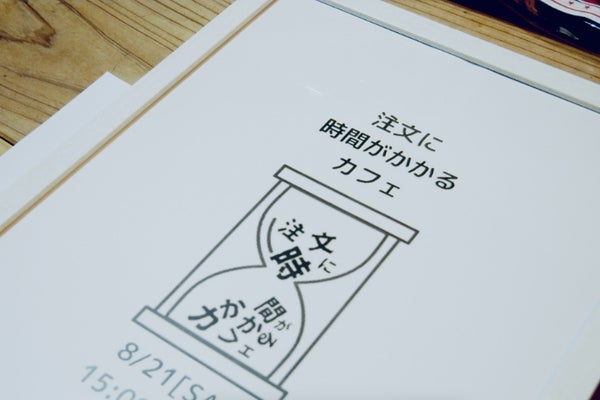 注文に
時間がかかる
カフェ
注文に
時
間が
かかる
カフェ
8/21[SA
15:0